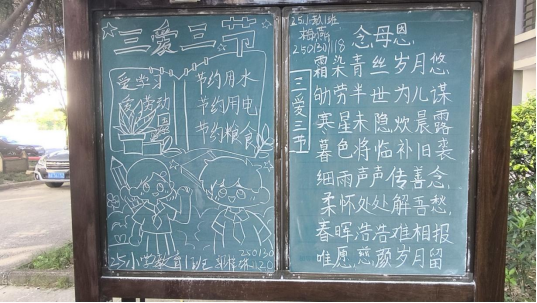 三爱三节
爱学习
爱劳动
爱祖国
节约用水
节约用电
节约粮食
25小学教育1班
250130
120
25小教1班
梅燕
250130118
三爱三节
念母恩
霜染青丝岁月悠,
劬劳半世为儿谋
寒星未隐炊晨露
暮色将临补旧裘
细雨声声传善念,
柔怀处处解吾愁,
春晖浩浩难相报
唯愿慈颜岁月留